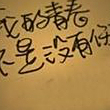 我的青春
不是没有任